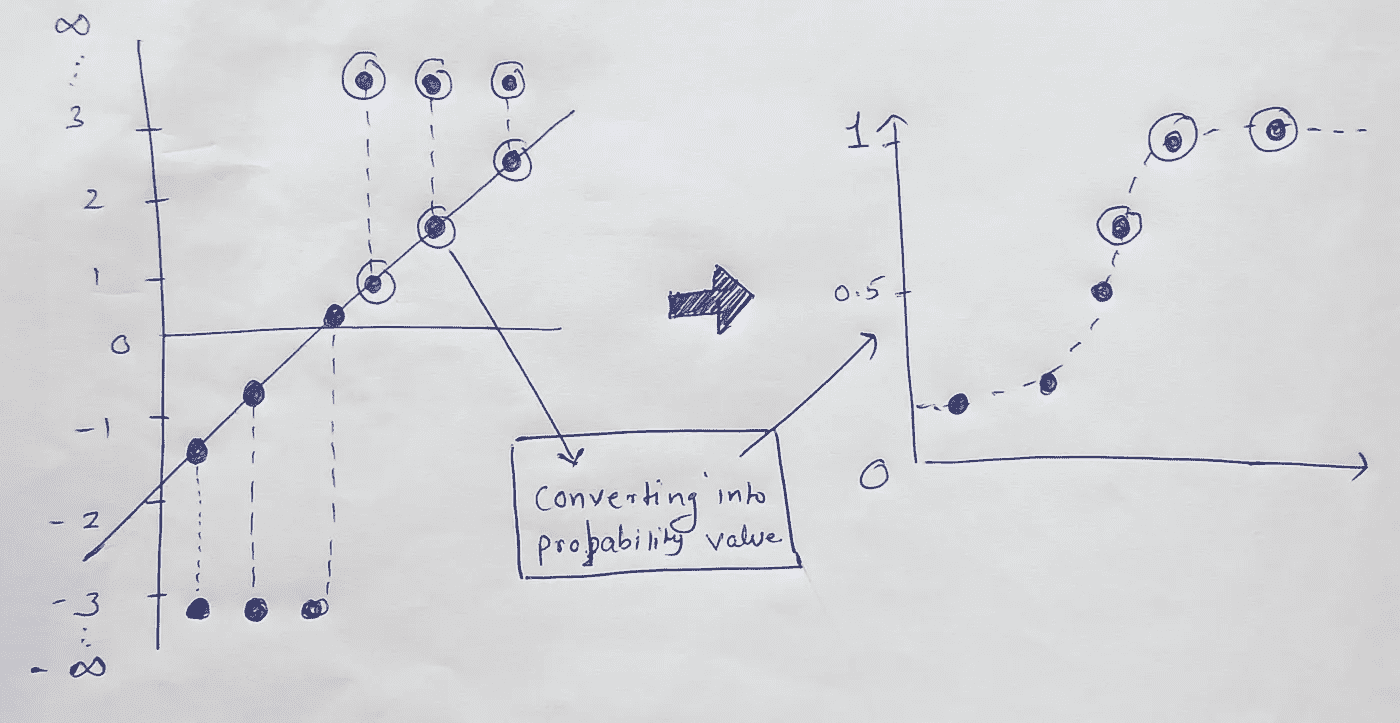 ∞
3
2
1
0
-1
-2
-3
- ∞
1
0.5
0
Converting into
probability value